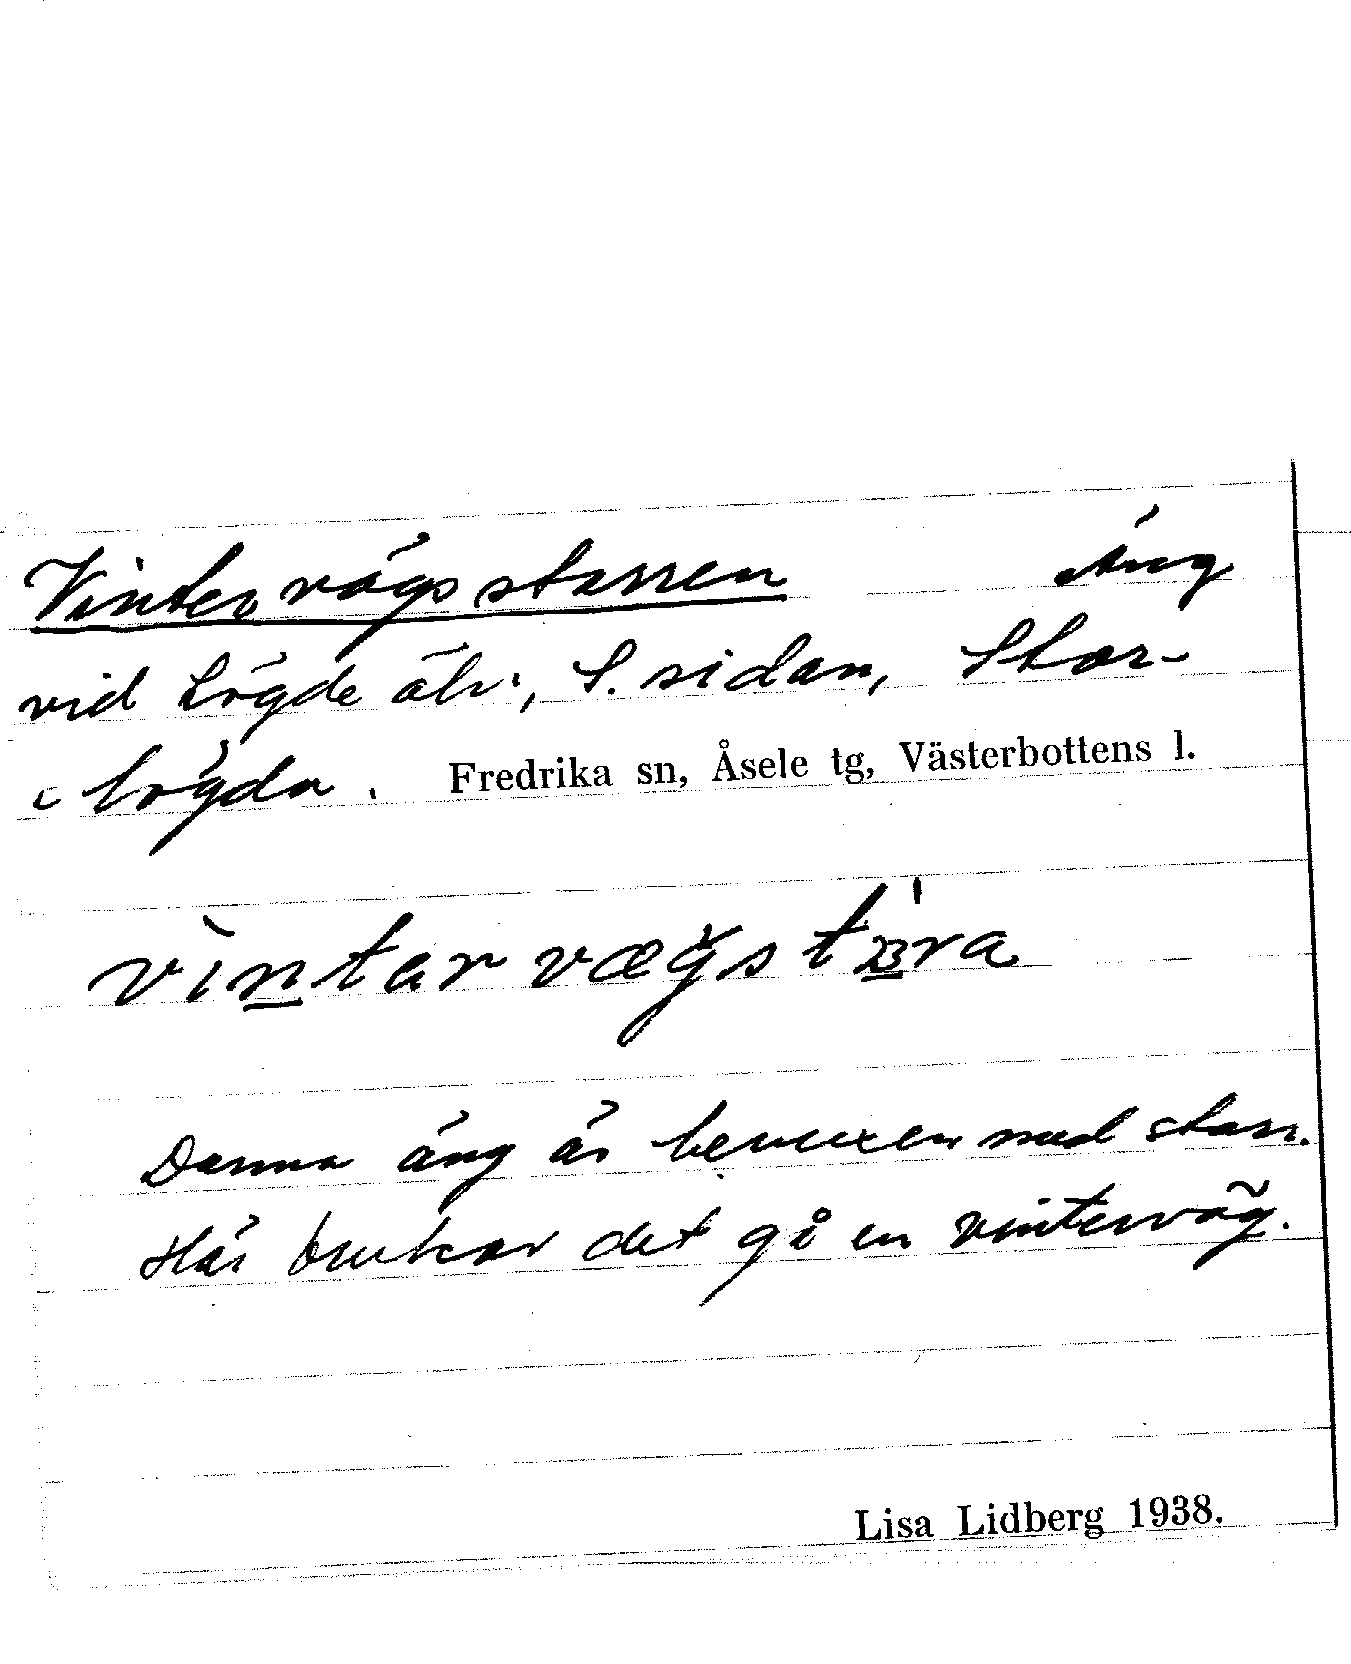 Vintervägsstarren Äng
vid Lögde älv, S. sidan, Stor-
lögda. Fredrika sn, Åsele tg, Västerbottens l.
Denna äng är bevuxen med starr.
Här brukar det gå en vinterväg.
Lisa Lidberg 1938.